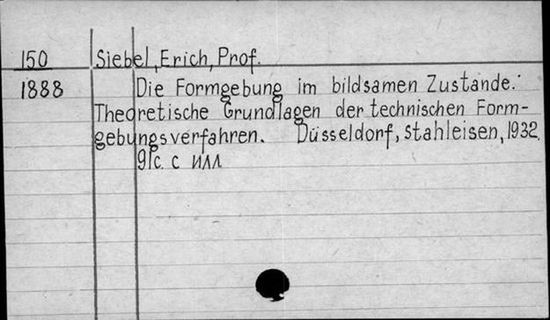 150 Siebel, Erich, Prof.
1888 Die Formgebung im bildsamen Zustande.
Theoretische Grundlagen der technischen Form-
gebungsverfahren. Düsseldorf, Stahleisen, 1932.
91c. с илл